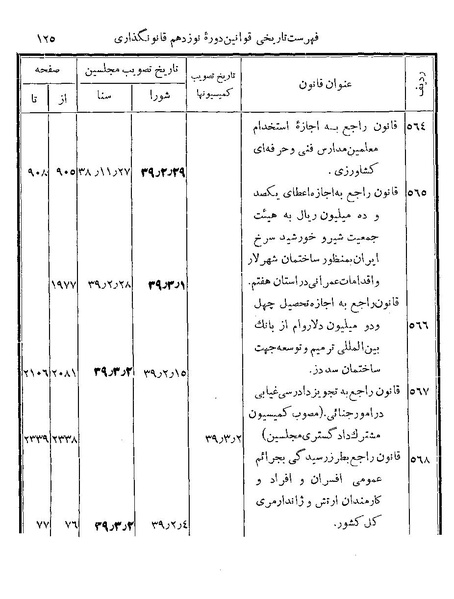 فهرست تاریخی قوانین دورهٔ نوزدهم قانونگذاری ۱۲۵
ردیف عنوان قانون تاریخ تصویب کمیسیونها تاریخ تصویب مجلسین صفحه
شورا سنا از تا
۵۶۴ قانون راجع به اجازهٔ استخدام
معلمین مدارس فنی وحرفه‌ای
کشاورزی . ۳۹٫۲٫۲۹ ۳۸٫۱۱٫۲۷ ۹۰۵ ۹۰۸
۵۶۵ قانون راجع به‌اجازه‌اعطای یکصد
و ده میلیون ریال به هیئت
جمعیت شیر و خورشید سرخ
ایران بمنظور ساختمان شهرلار
و اقدامات عمرانی در استان هفتم. ۳۹٫۳٫۱ ۳۹٫۲٫۲۸ ۱۹۷۷
قانون راجع به اجازه تحصیل چهل
۵۶۶ ودو میلیون دلار وام از بانك
بین‌المللی ترمیم و توسعه جهت
ساختمان سد دز. ۳۹٫۲٫۱۵ ۳۹٫۳٫۲ ۲۰۸۱ ۲۱۰۶
۵۶۷ قانون راجع به تجویز دادرسی غیابی
در امور جنائی.(مصوب کمیسیون
مشترك دادگستری مجلسین) ۳۹٫۳٫۲ ۲۳۳۸ ۲۳۳۹
۵۶۸ قانون راجع بطرز رسیدگی بجرائم
عمومی افسران و افراد و
کارمندان ارتش و ژاندارمری
کل کشور. ۳۹٫۲٫۴ ۳۹٫۳٫۲ ۷۶ ۷۷